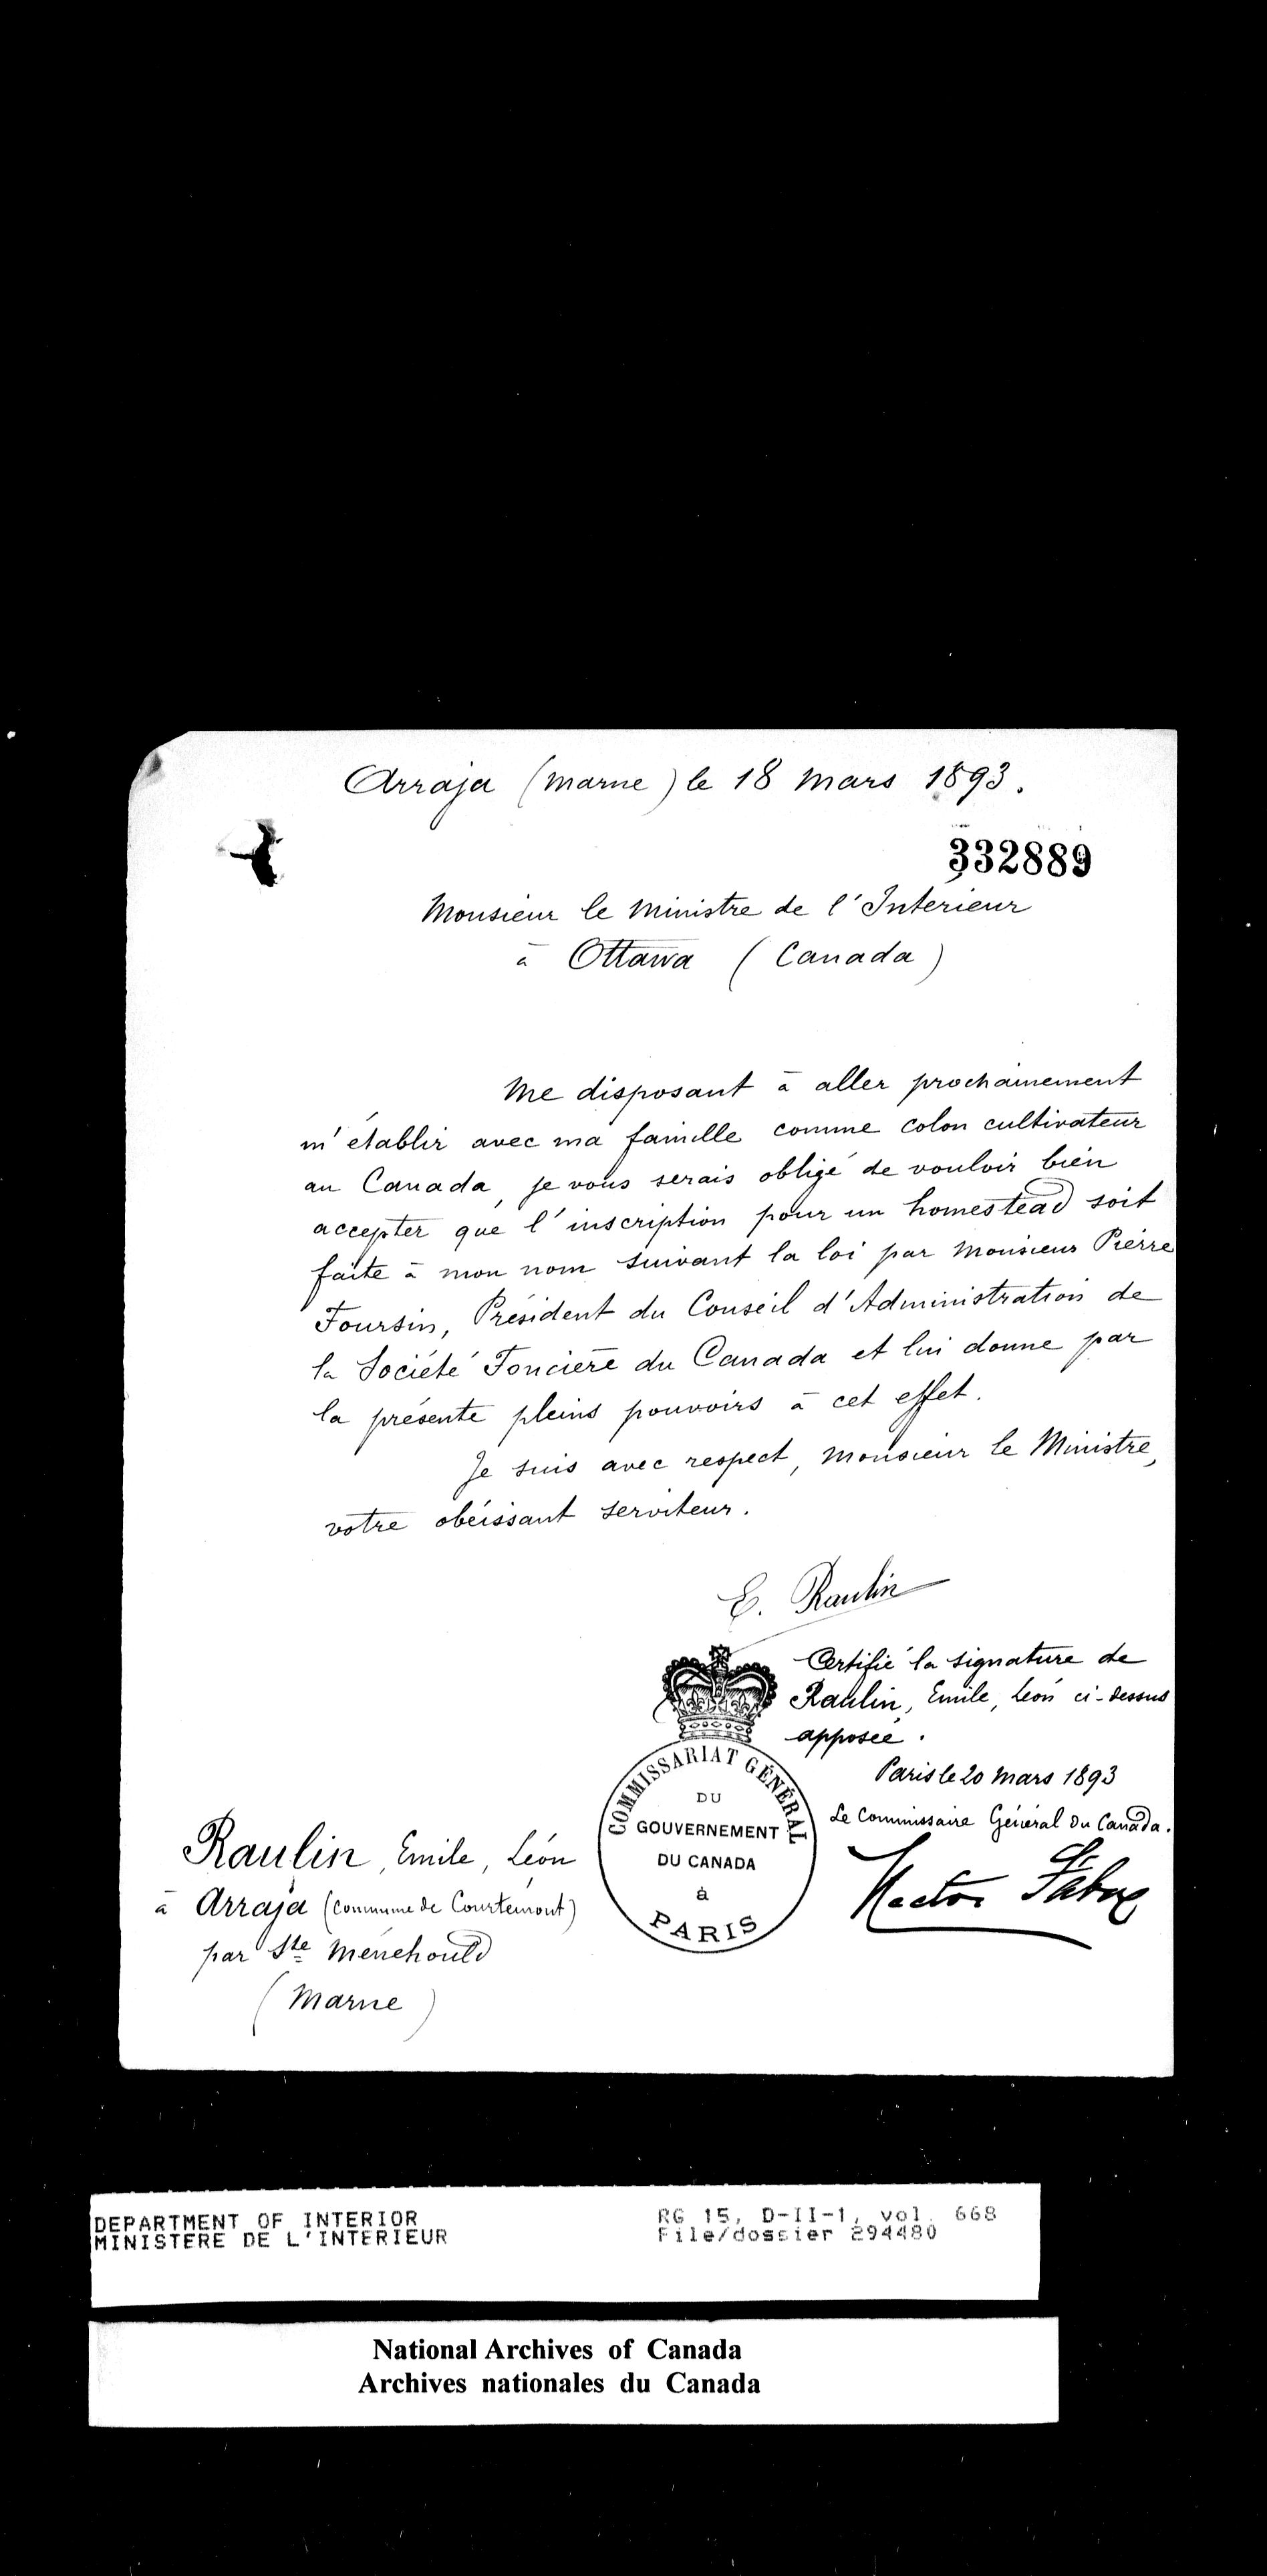 Arraja (Marne) le 18 Mars 1893.
332889
Monsieur le Ministre de l'Intérieur
à Ottawa (Canada)
Me disposant à aller prochainement
m'établir avec ma famille comme colon cultivateur
au Canada, je vous serais obligé de vouloir bien
accepter que l'inscription pour un homestead soit
faite à mon nom suivant la loi par Monsieur Pierre
Foursin, Président du Conseil d'Administration de
la Société Foncière du Canada et lui donne par
la présente pleins pouvoirs à cet effet.
Je suis avec respect, Monsieur le Ministre,
votre obéissant serviteur.
E. Raulin
Certifié la signature de
Raulin, Emile, Léon ci-dessus
apposée.
Paris le 20 Mars 1893
Le Commissaire Général du Canada.
Hector Fabre
COMMISSARIAT GÉNÉRAL
DU
GOUVERNEMENT
DU CANADA
à
PARIS
Raulin, Emile, Léon
à Arraja (commune de Courtémont)
par Ste Ménehould
(Marne)
DEPARTMENT OF INTERIOR
MINISTERE DE L'INTERIEUR
RG 15, D-II-1, vol. 668
File/dossier 294480
National Archives of Canada
Archives nationales du Canada